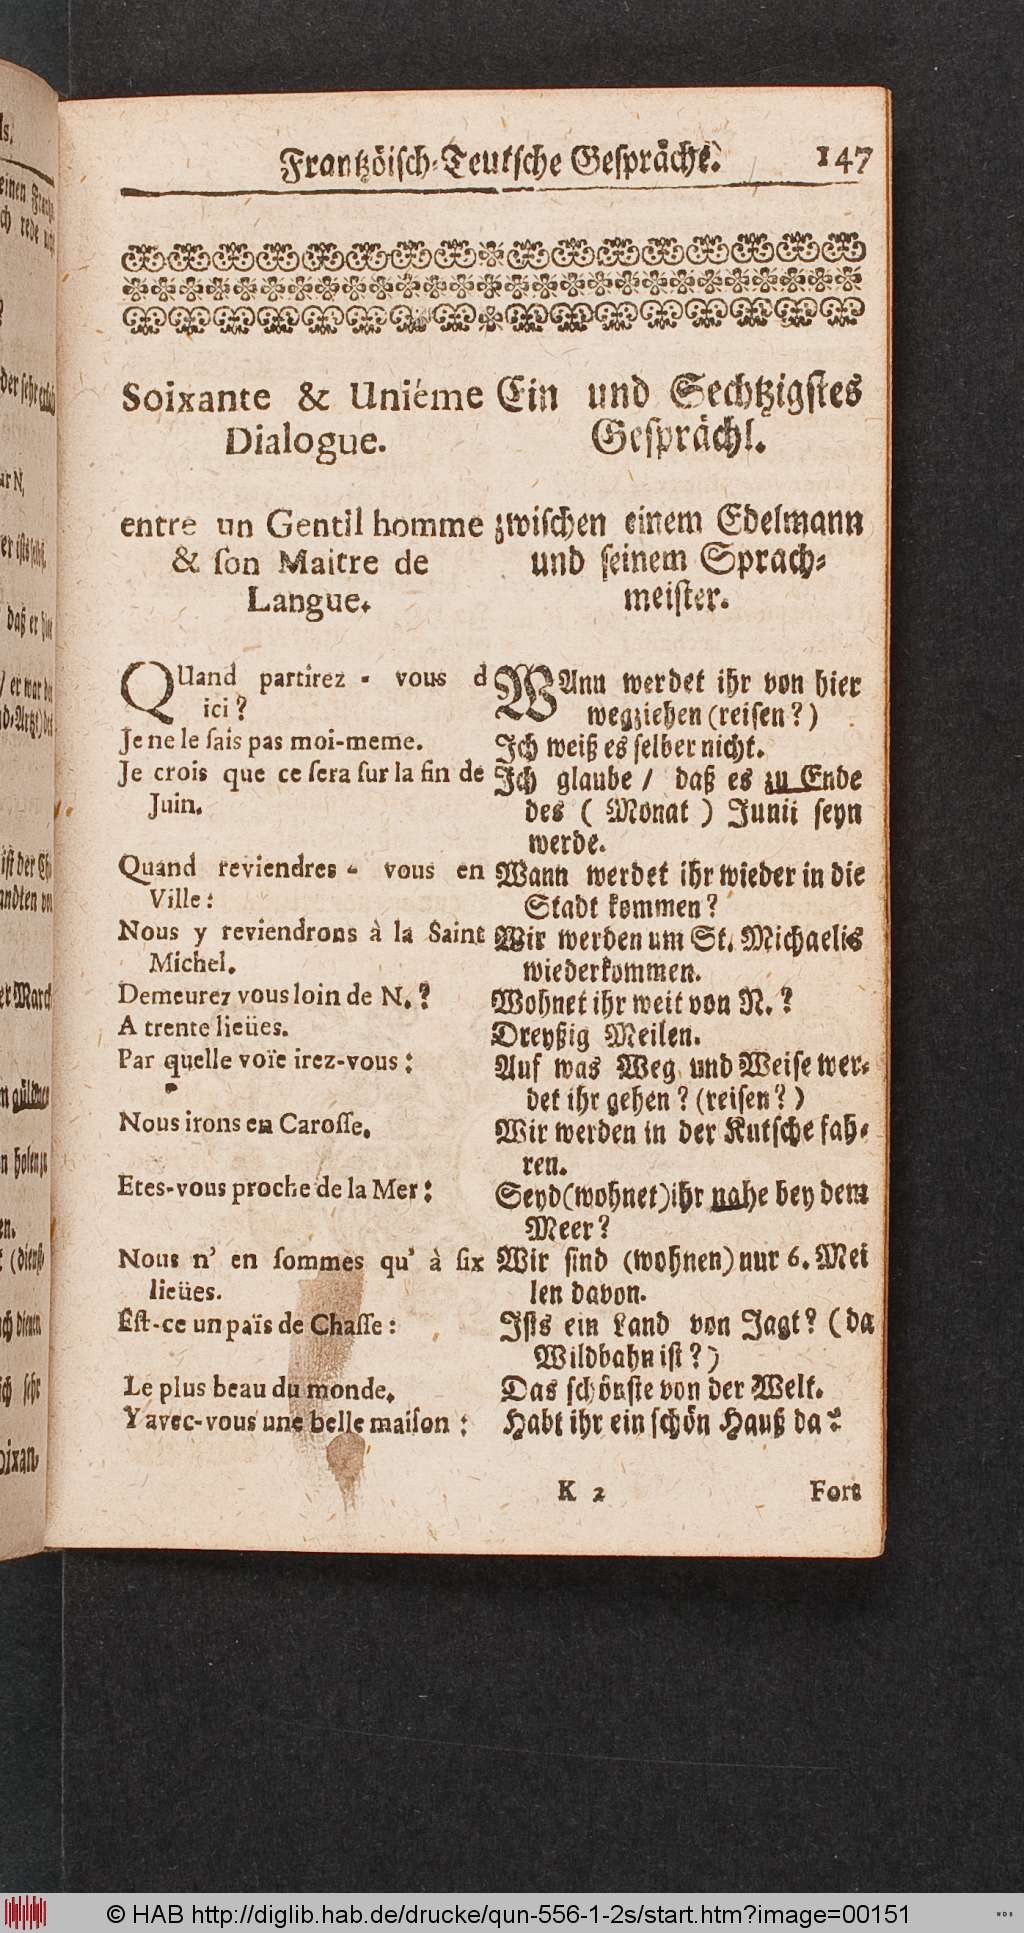 Frantzöisch-Teutsche Gespräche. 147
Soixante & Uniéme
Dialogue.
entre un Gentil homme
& ſon Maitre de
Langue.
QUand partirez - vous d
ici?
Je ne le ſais pas moi-meme.
Je crois que ce ſera ſur la fin de
Juin.
Quand reviendres - vous en
Ville:
Nous y reviendrons à la Saint
Michel.
Demeurez vous loin de N.?
A trente lieües.
Par quelle voïe irez-vous:
Nous irons en Caroſſe.
Etes-vous proche de la Mer:
Nous n' en ſommes qu' à ſix
lieües.
Eſt-ce un païs de Chaſſe:
Le plus beau du monde.
Y avec-vous une belle maiſon:
Ein und Sechtzigſtes
Geſprächl.
zwiſchen einem Edelmann
und ſeinem Sprach-
meiſter.
WAnn werdet ihr von hier
wegziehen (reiſen?)
Ich weiß es ſelber nicht.
Ich glaube / daß es zu Ende
des ( Monat ) Junii ſeyn
werde.
Wann werdet ihr wieder in die
Stadt kommen?
Wir werden um St. Michaelis
wiederkommen.
Wohnet ihr weit von N.?
Dreyßig Meilen.
Auf was Weg und Weiſe wer-
det ihr gehen? (reiſen?)
Wir werden in der Kutſche fah-
ren.
Seyd (wohnet) ihr nahe bey dem
Meer?
Wir ſind (wohnen) nur 6. Mei
len davon.
Iſts ein Land von Jagt? (da
Wildbahn iſt?)
Das ſchönſte von der Welt.
Habt ihr ein ſchön Hauß da?
K 2 Fort
© HAB http://diglib.hab.de/drucke/qun-556-1-2s/start.htm?image=00151